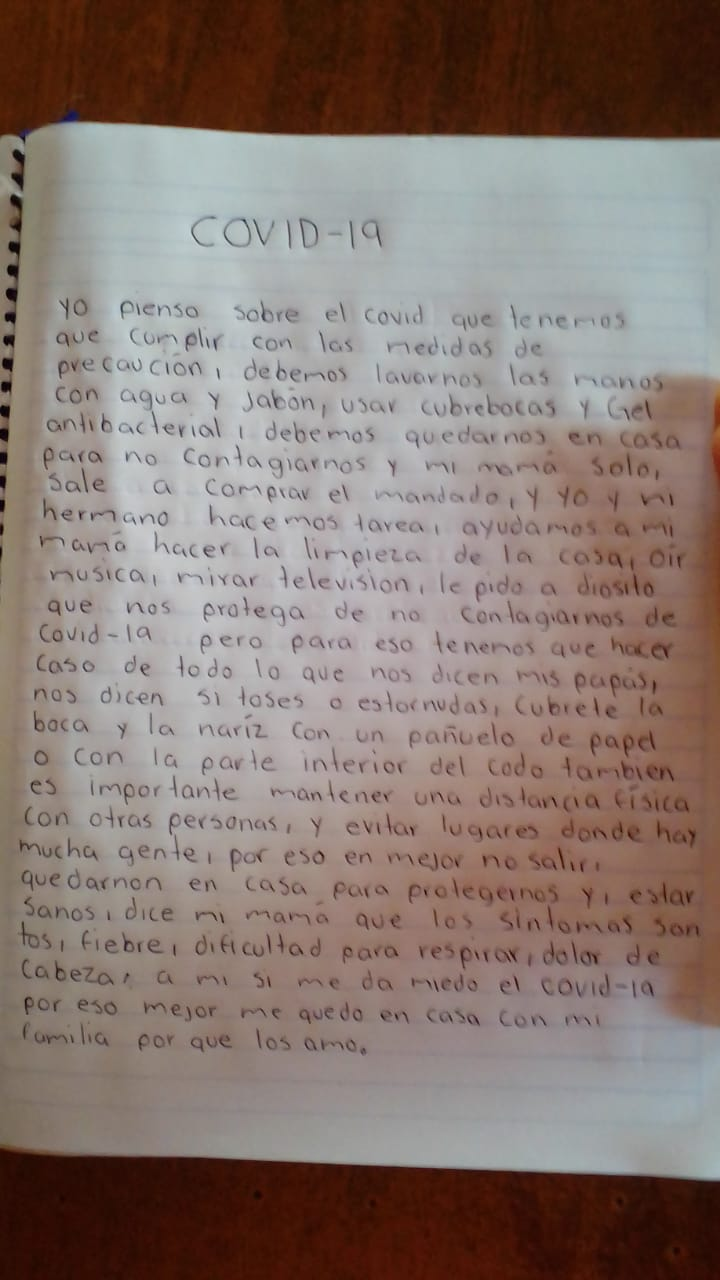 COVID-19
yo pienso sobre el covid que tenemos
que cumplir con las medidas de
precaución, debemos lavarnos las manos
con agua y Jabón, usar cubrebocas y Gel
antibacterial, debemos quedarnos en casa
para no contagiarnos y mi mamá solo,
sale a comprar el mandado, y yo y mi
hermano hacemos tarea, ayudamos a mi
mamá hacer la limpieza de la casa, oir
musica, mirar television, le pido a diosito
que nos protega de no contagiarnos de
covid-19 pero para eso tenemos que hacer
caso de todo lo que nos dicen mis papás,
nos dicen si toses o estornudas, cubrete la
boca y la naríz con un pañuelo de papel
o con la parte interior del codo tambien
es importante mantener una distancia física
con otras personas, y evitar lugares donde hay
mucha gente, por eso en mejor no salir,
quedarnon en casa para protegernos y, estar
sanos, dice mi mamá que los síntomas son
tos, fiebre, dificultad para respirar, dolor de
cabeza, a mi si me da miedo el covid-19
por eso mejor me quedo en casa con mi
familia por que los amo.